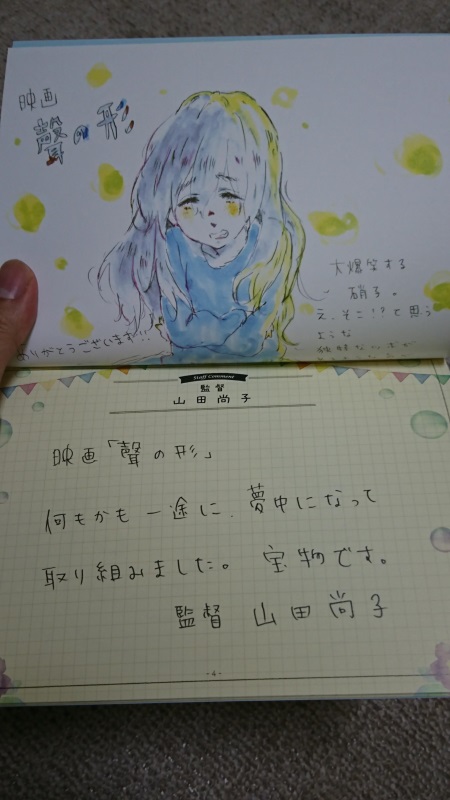 映画
聲の形
大爆笑する
硝子。
え、そこ!?と思う
ような
ありがとうございます!!
Staff Comment
監督
山田尚子
映画「聲の形」
何もかも一途に、夢中になって
取り組みました。宝物です。
監督 山田尚子
-4-